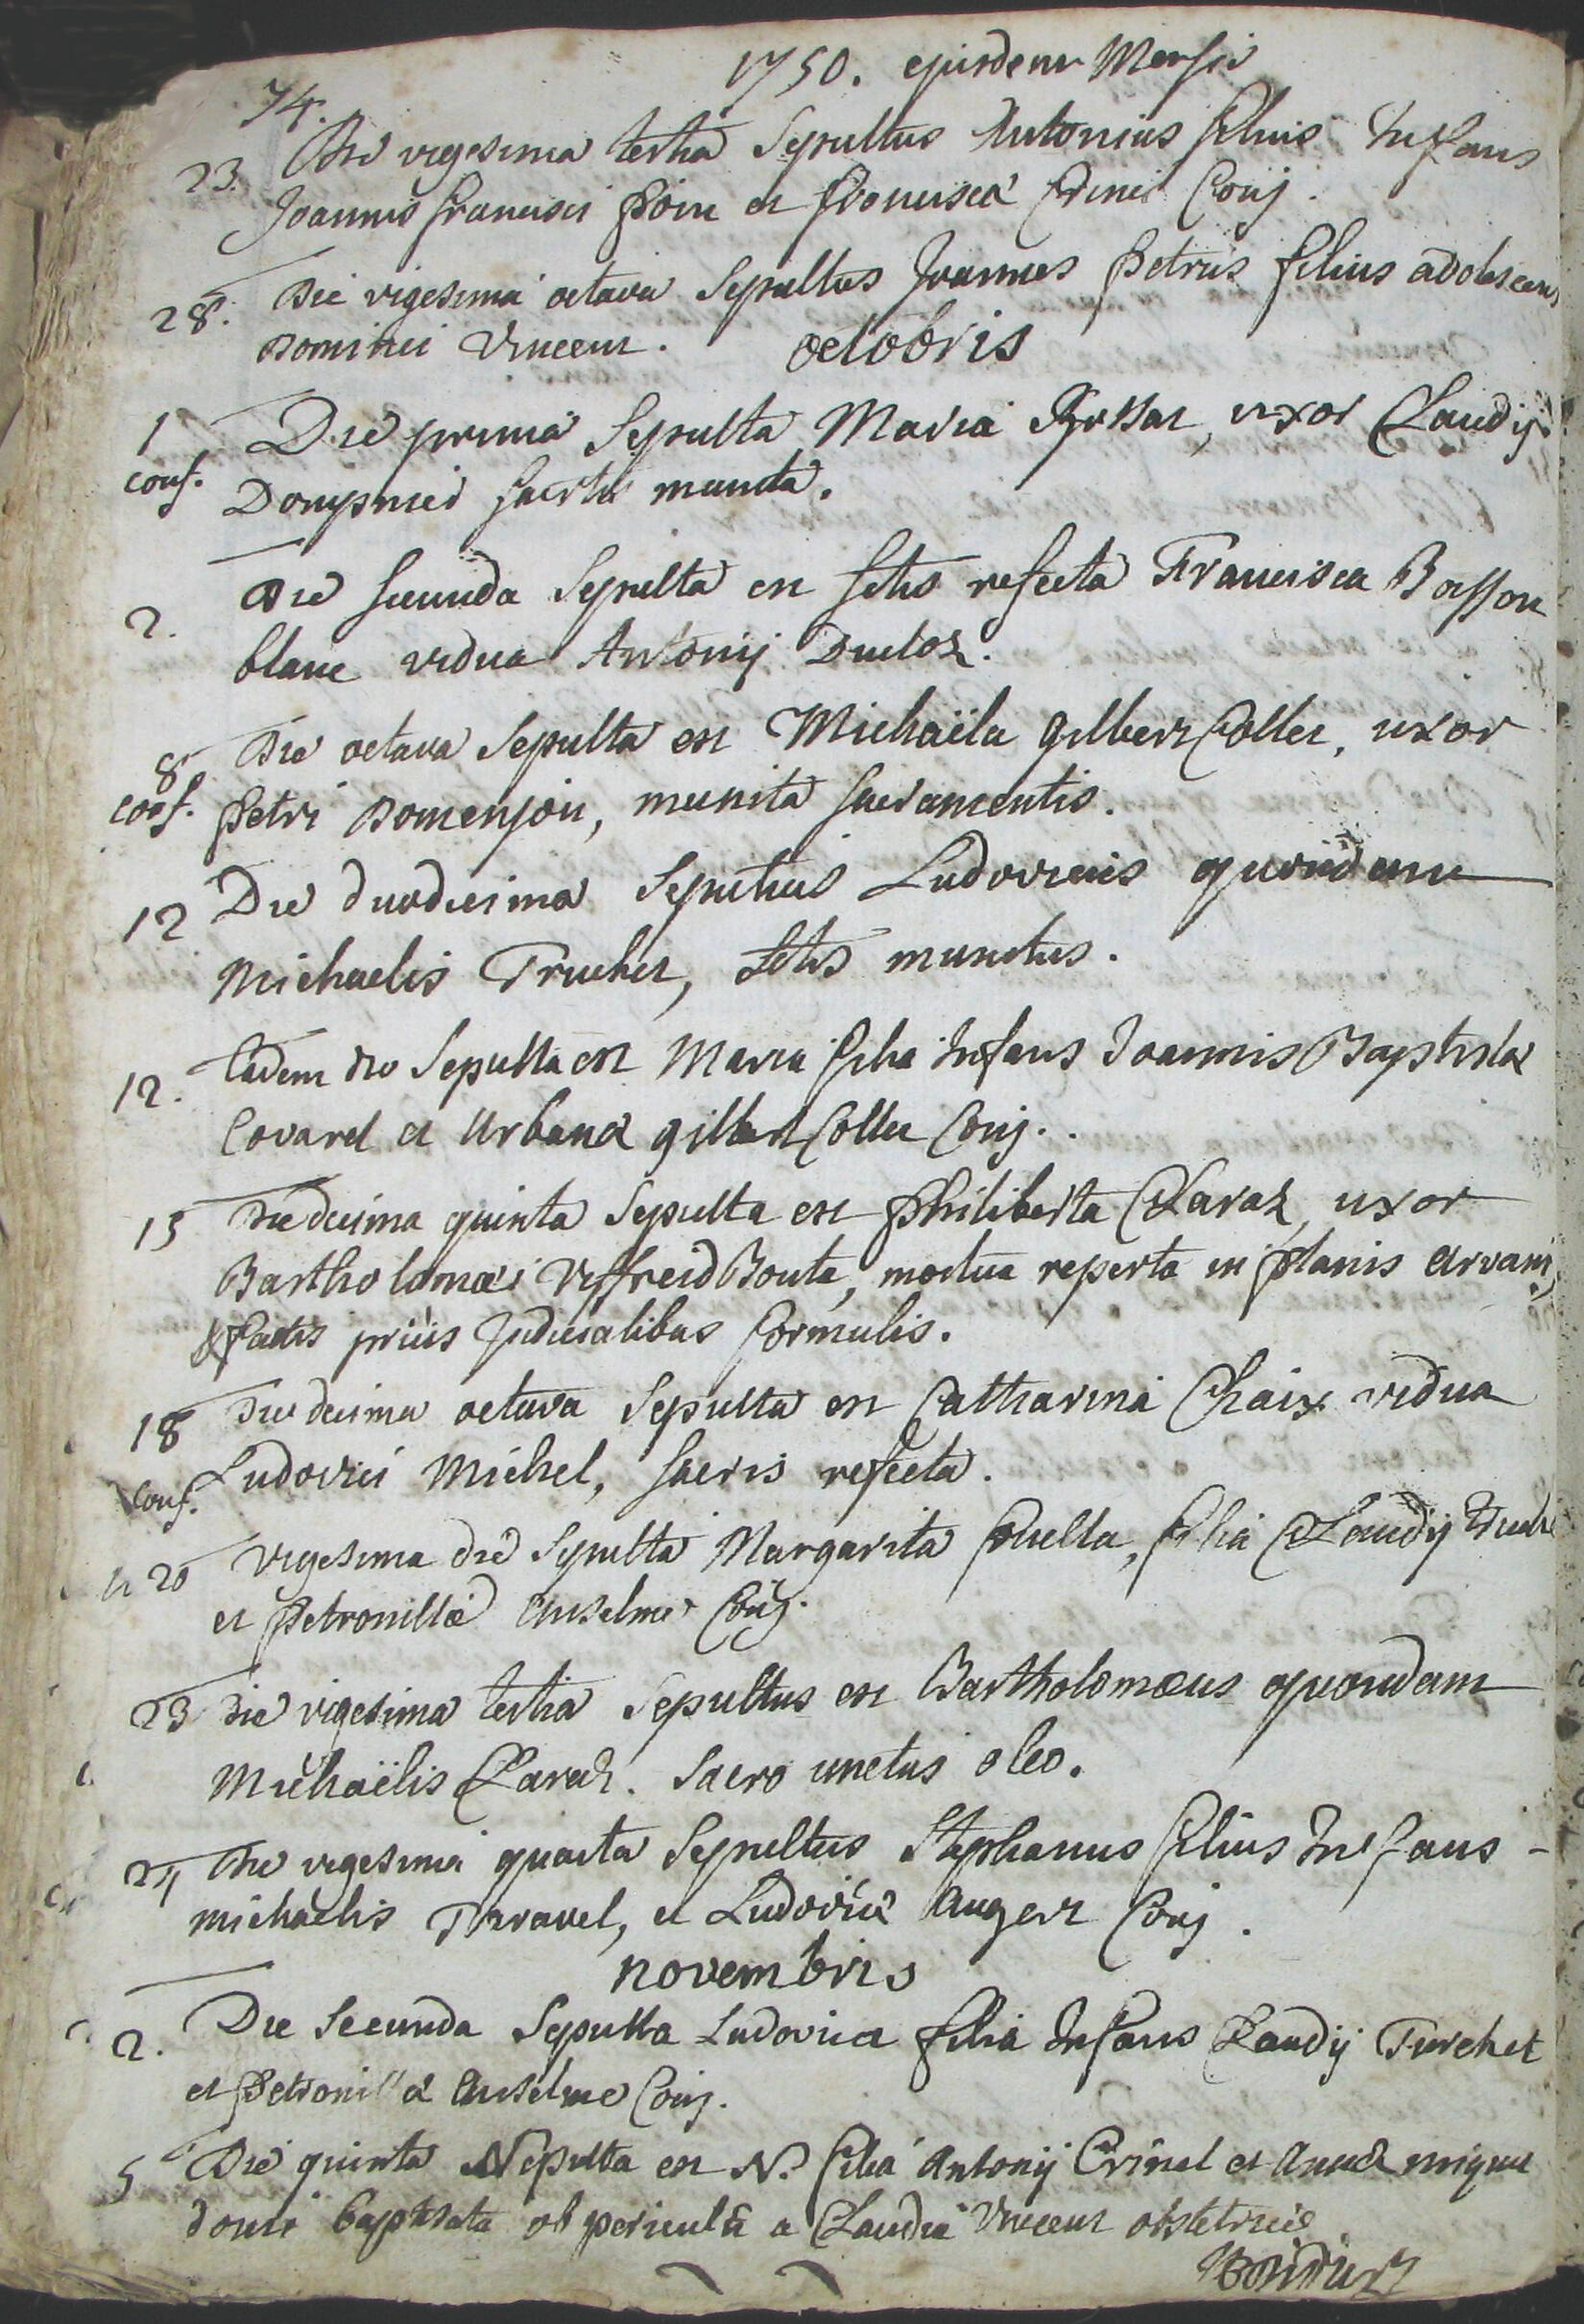 1750. ejusdem Mensis
74.
23. Die vigesima tertia Sepultus Antonius filius Infans
Joannis francisci et franciscæ Crinel Conj.
28. Die vigesima octava Sepultus Joannes Petrus filius adolescens
Dominici Vincent.
octobris
1 Die prima Sepulta Maria uxor Claudij
conf. Dompnier munita.
2. Die secunda Sepulta est sctis refecta Francisca Bosson
blanc vidua Antonij Ducloz.
8 Die octava Sepulta est Michaëla gilbert Collet, uxor
conf. Petri Domenjon, munita sacramentis.
12 Die duodecima Sepultus Ludovicus quondam
Michaelis Truchet, sctis munitus.
12. Eadem die Sepulta est Maria filia Infans Joannis Baptistæ
Covarel et Urbanæ gilbert Collet Conj.
15 Die decima quinta Sepulta est Philiberta Claraz, uxor
Bartholomæi Viffreid Bouta, mortua reperta in planis arvani,
& factis priùs Judicialibus formulis.
18 Die decima octava Sepulta est Catharina Chaix vidua
conf. Ludovici Michel, sacris refecta.
20 Vigesima die Sepulta Margarita puella, filia Claudij
et Petronillæ Anselme Conj.
23 Die vigesima tertia Sepultus est Bartholomæus quondam
Michaëlis Claraz. Sacro unctus oleo.
24 Die vigesima quarta Sepultus Stephanus filius Infans -
michaelis Traravel, et Ludovicæ Augert Conj.
novembris
2. Die Secunda Sepulta Ludovica filia Infans Claudij Turchet
et Petronillæ Anselme Conj.
5 Die quinta Sepulta est N. filia Antonij Crinel et Annæ
domi baptisata ob periculū a Claudia Vincent obstetrice